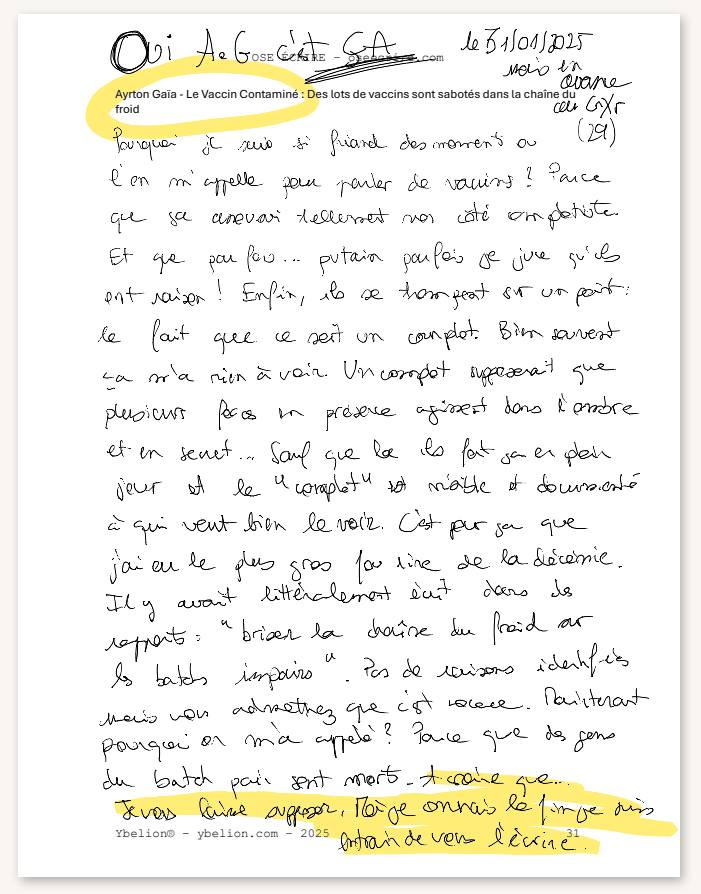 Oui AeG c'est GA
OSE ÉCRIRE – ybelion.com
le 31/01/2025
mais en
avance
(29)
Ayrton Gaïa - Le Vaccin Contaminé : Des lots de vaccins sont sabotés dans la chaîne du
froid
Pourquoi je suis si friand des moments ou
l'on m'appelle pour parler de vaccins ? Parce
que ça tellement mon côté complotiste
Et que parfois... putain parfois je jure qu'ils
ont raison ! Enfin, ils se trompent sur un point :
le fait que ce soit un complot. Bien souvent
ça n'a rien à voir. Un complot supposerait que
plusieurs forces en présence agissent dans l'ombre
et en secret... Sauf que la ils font ça en plein
jour et le "complot" est visible et documenté
à qui veut bien le voir. C'est pour ça que
j'ai eu le plus gros fou rire de la décennie.
Il y avait littéralement écrit dans les
rapports : "briser la chaîne du froid sur
les batchs impairs". Pas de raisons identifiés
mais vous admettrez que c'est cocasse. Maintenant
pourquoi on m'a appelé ? Parce que des gens
du batch pair sont morts. A croire que...
Je vous laisse supposer. Moi je connais la fin je suis
entrain de vous l'écrire.
Ybelion® – ybelion.com – 2025
31